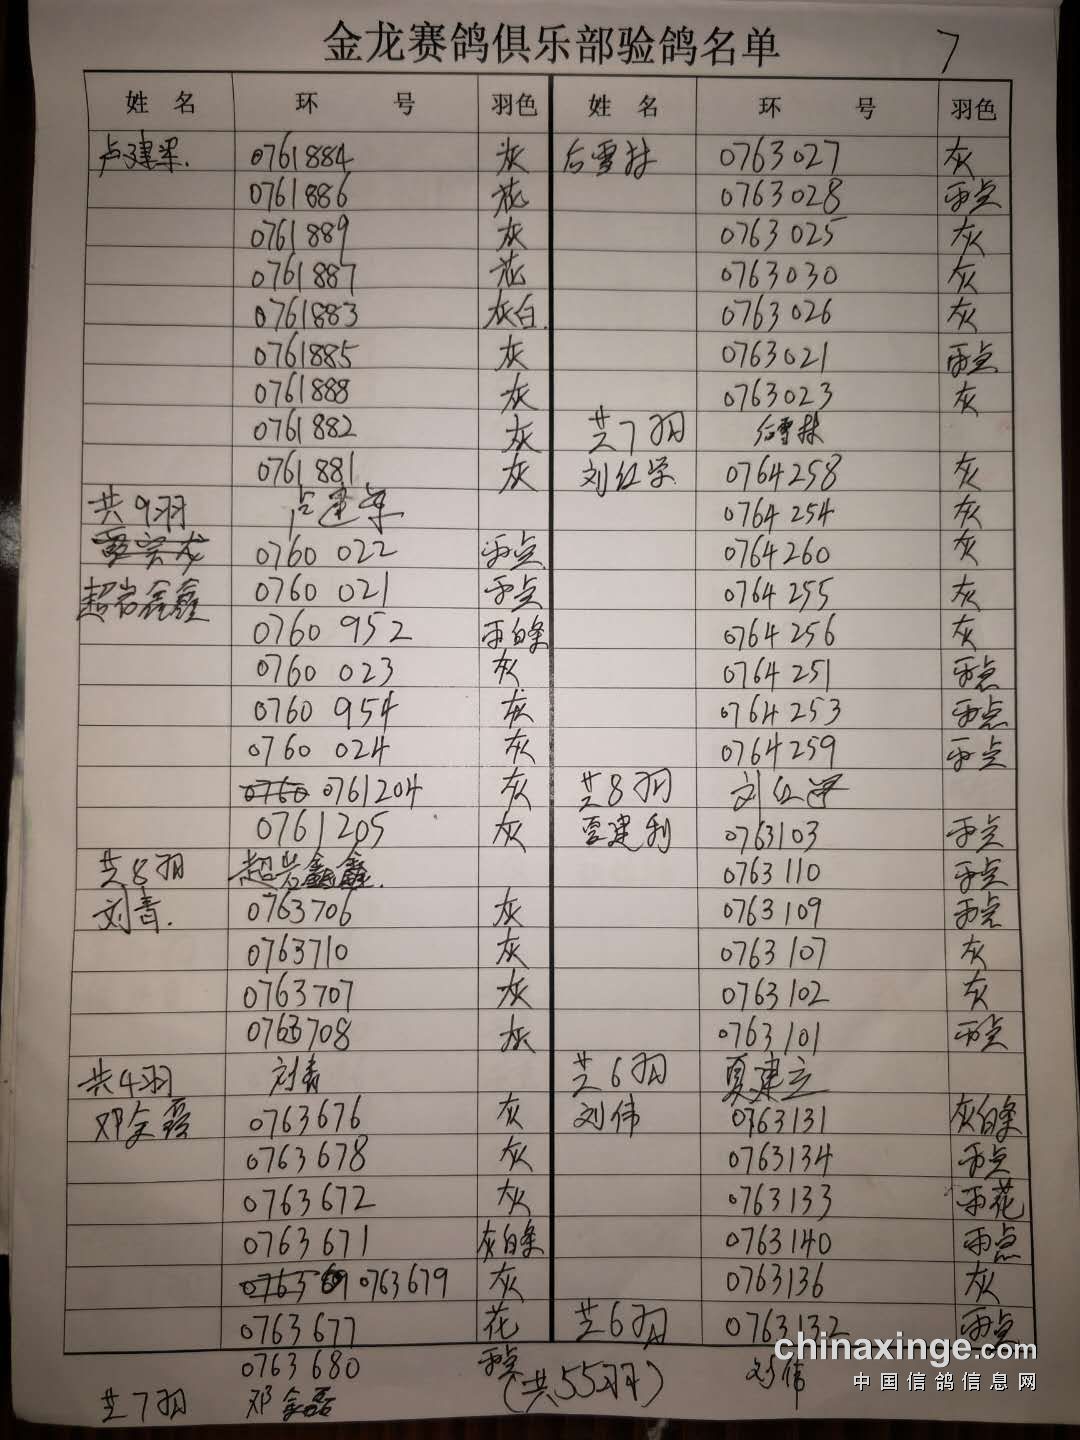 金龙赛鸽俱乐部验鸽名单
7
姓名 环号 羽色
卢建军. 0761884 灰
0761886 花
0761889 灰
0761887 花
0761883 灰白.
0761885 灰
0761888 灰
0761882 灰
0761881 灰
共9羽 卢建军
0760 022 雨点
0760 021 雨点
0760 952 雨白条
0760 023 灰
0760 954 灰
0760 024 灰
0760 0761204 灰
0761205 灰
共8羽 超岩鑫鑫.
刘青. 0763706 灰
0763710 灰
0763707 灰
0763708 灰
共4羽 刘青
邓金磊 0763676 灰
0763678 灰
0763672 灰
0763671 灰白条
0763679 灰
0763677 花
0763680 雨点
共7羽 邓金磊
姓名 环号 羽色
后雪林 0763027 灰
0763028 雨点
0763025 灰
0763030 灰
0763026 灰
0763021 雨点
0763023 灰
共7羽 后雪林
刘红学 0764258 灰
0764254 灰
0764260 灰
0764255 灰
0764256 灰
0764251 雨点
0764253 雨点
0764259 雨点
共8羽 刘红
夏建利 0763103 雨点
0763110 雨点
0763109 雨点
0763107 灰
0763102 灰
0763101 雨点
共6羽 夏建立
刘伟 0763131 灰白条
0763134 雨点
0763133 雨花
0763140 雨点
0763136 灰
共6羽 0763132 雨点
(共55羽) 刘伟
chinaxinge.com
中国信鸽信息网